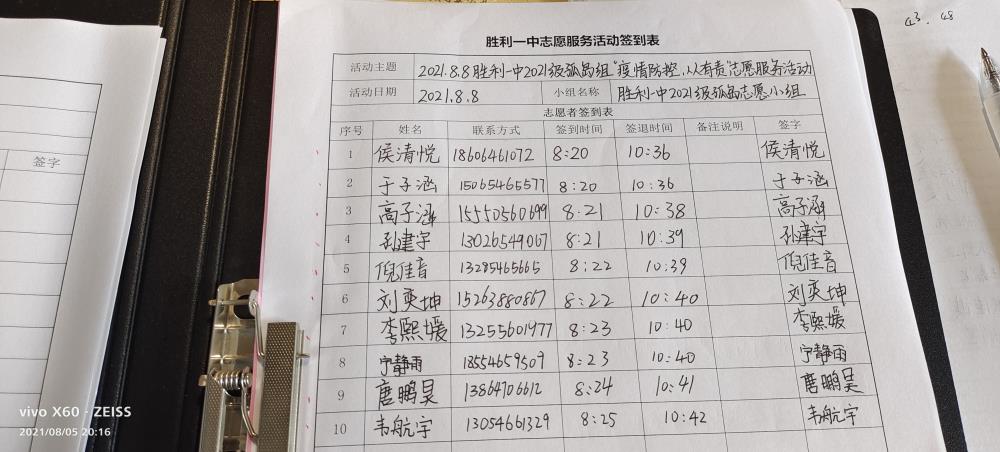 胜利一中志愿服务活动签到表
活动主题 2021.8.8胜利一中2021级孤岛组"疫情防控,人人有责"志愿服务活动
活动日期 2021.8.8 小组名称 胜利一中2021级孤岛志愿小组
志愿者签到表
序号 姓名 联系方式 签到时间 签退时间 备注说明 签字
1 侯清悦 18606461072 8:20 10:36 侯清悦
2 于子涵 15065465577 8:20 10:36 于子涵
3 高子涵 15550560699 8:21 10:38 高子涵
4 孙建宇 13026549067 8:21 10:39 孙建宇
5 倪佳音 13285465665 8:22 10:39 倪佳音
6 刘奕坤 15263880867 8:22 10:40 刘奕坤
7 李熙媛 13255601977 8:23 10:40 李熙媛
8 宁静雨 18554659509 8:23 10:40 宁静雨
9 唐鹏昊 13864706612 8:24 10:41 唐鹏昊
10 韦航宇 13054661329 8:25 10:42 韦航宇
签字
43. 48
vivo X60 - ZEISS
2021/08/05 20:16